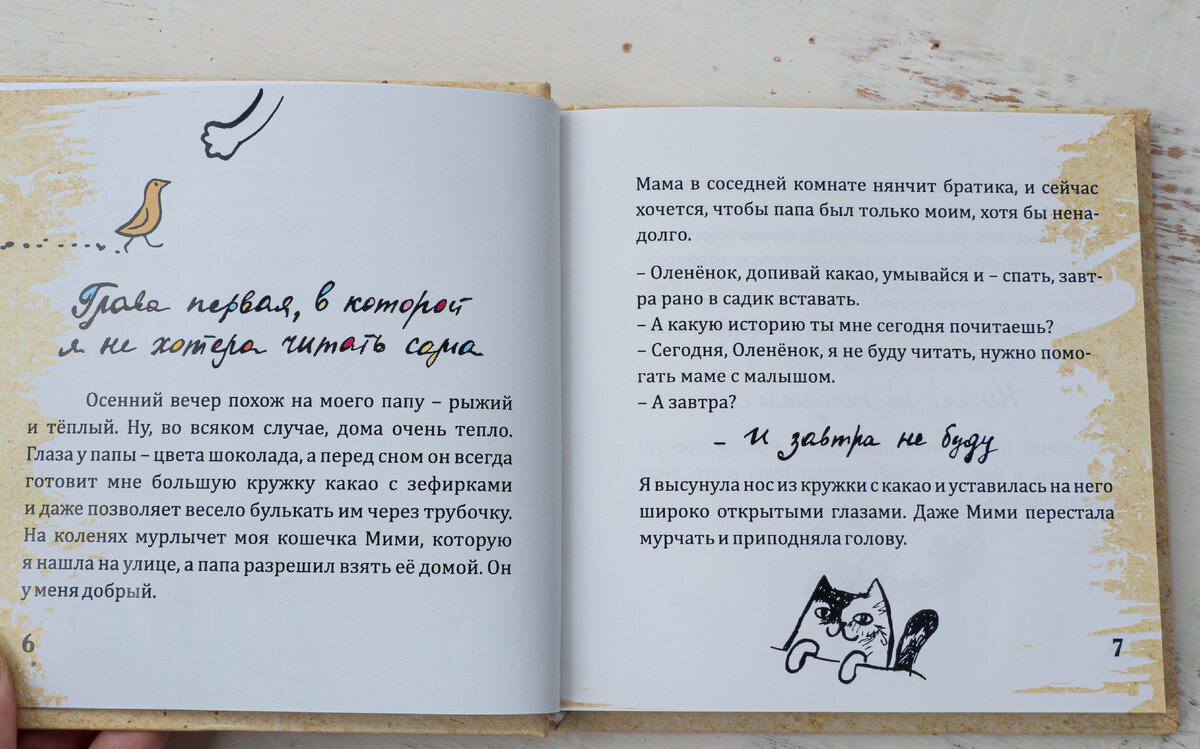 Глава первая, в которой
я не хотела читать сама
Осенний вечер похож на моего папу – рыжий
и тёплый. Ну, во всяком случае, дома очень тепло.
Глаза у папы – цвета шоколада, а перед сном он всегда
готовит мне большую кружку какао с зефирками
и даже позволяет весело булькать им через трубочку.
На коленях мурлычет моя кошечка Мими, которую
я нашла на улице, а папа разрешил взять её домой. Он
у меня добрый.
6
Мама в соседней комнате нянчит братика, и сейчас
хочется, чтобы папа был только моим, хотя бы нена-
долго.
– Оленёнок, допивай какао, умывайся и – спать, завт-
ра рано в садик вставать.
– А какую историю ты мне сегодня почитаешь?
– Сегодня, Оленёнок, я не буду читать, нужно помо-
гать маме с малышом.
– А завтра?
– И завтра не буду
Я высунула нос из кружки с какао и уставилась на него
широко открытыми глазами. Даже Мими перестала
мурчать и приподняла голову.
7